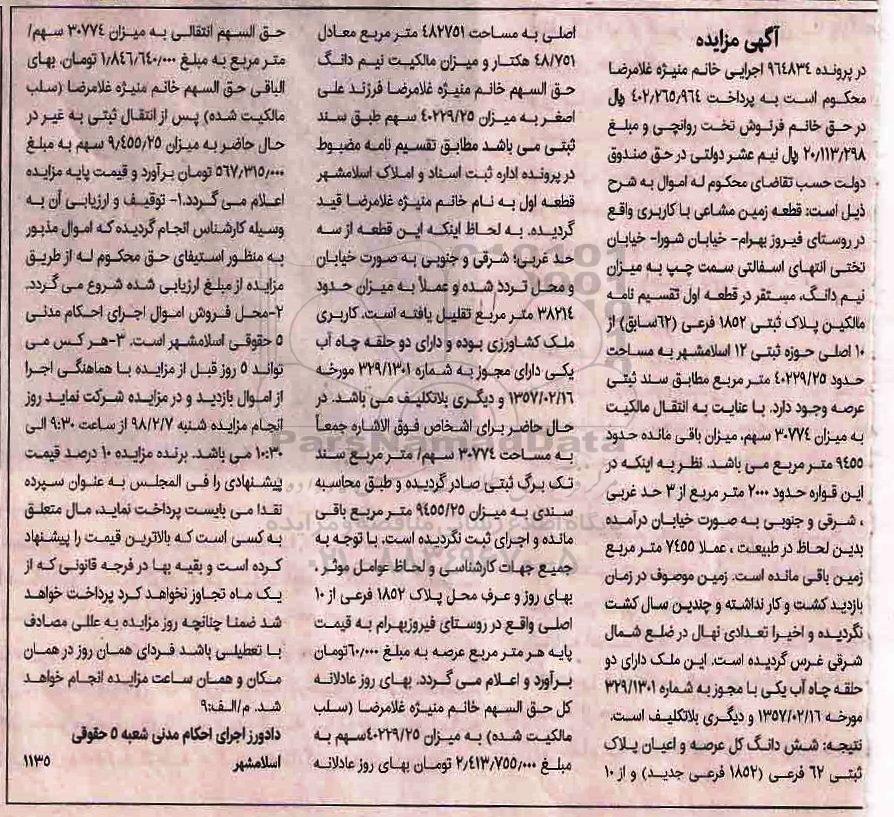 آگهی مزایده
در پرونده ۹۶۴۸۳۴ اجرایی خانم منیژه غلامرضا
محکوم است به پرداخت ۴۰۲٫۲۶۵٫۹۶۴ ریال
در حق خانم فرنوش تخت روانچی و مبلغ
۲۰٫۱۱۳٫۲۹۸ ریال نیم عشر دولتی در حق صندوق
دولت حسب تقاضای محکوم له اموال به شرح
ذیل است: قطعه زمین مشاعی با کاربری واقع
در روستای فیروز بهرام- خیابان شورا- خیابان
تختی انتهای اسفالتی سمت چپ به میزان
نیم دانگ، مستقر در قطعه اول تقسیم نامه
مالکین پلاک ثبتی ۱۸۵۲ فرعی (۶۲سابق) از
۱۰ اصلی حوزه ثبتی ۱۲ اسلامشهر به مساحت
حدود ۴۰۲۲۹/۲۵ متر مربع مطابق سند ثبتی
عرصه وجود دارد. با عنایت به انتقال مالکیت
به میزان ۳۰۷۷۴ سهم، میزان باقی مانده حدود
۹۴۵۵ متر مربع می باشد. نظر به اینکه در
این قواره حدود ۲۰۰۰ متر مربع از ۳ حد غربی
، شرقی و جنوبی به صورت خیابان درآمده
بدین لحاظ در طبیعت ، عملا ۷۴۵۵ متر مربع
زمین باقی مانده است. زمین موصوف در زمان
بازدید کشت و کار نداشته و چندین سال کشت
نگردیده و اخیرا تعدادی نهال در ضلع شمال
شرقی غرس گردیده است. این ملک دارای دو
حلقه چاه آب یکی با مجوز به شماره ۳۲۹/۱۳۰۱
مورخه ۱۳۵۷/۰۲/۱۶ و دیگری بلاتکلیف است.
نتیجه: شش دانگ کل عرصه و اعیان پلاک
ثبتی ۶۲ فرعی (۱۸۵۲ فرعی جدید) و از ۱۰
اصلی به مساحت ۴۸۲۷۵۱ متر مربع معادل
۴۸/۷۵۱ هکتار و میزان مالکیت نیم دانگ
حق السهم خانم منیژه غلامرضا فرزند علی
اصغر به میزان ۴۰۲۲۹/۲۵ سهم طبق سند
ثبتی می باشد مطابق تقسیم نامه مضبوط
در پرونده اداره ثبت اسناد و املاک اسلامشهر
قطعه اول به نام خانم منیژه غلامرضا قید
گردیده. به لحاظ اینکه این قطعه از سه
حد غربی؛ شرقی و جنوبی به صورت خیابان
و محل تردد شده و عملاً به میزان حدود
۳۸۲۱۴ متر مربع تقلیل یافته است. کاربری
ملک کشاورزی بوده و دارای دو حلقه چاه آب
یکی دارای مجوز به شماره ۳۲۹/۱۳۰۱ مورخه
۱۳۵۷/۰۲/۱۶ و دیگری بلاتکلیف می باشد. در
حال حاضر برای اشخاص فوق الاشاره جمعاً
به مساحت ۳۰۷۷۴ سهم/ متر مربع سند
تک برگ ثبتی صادر گردیده و طبق محاسبه
سندی به میزان ۹۴۵۵/۲۵ متر مربع باقی
مانده و اجرای ثبت نگردیده است. با توجه به
جمیع جهات کارشناسی و لحاظ عوامل موثر ،
بهای روز و عرف محل پلاک ۱۸۵۲ فرعی از ۱۰
اصلی واقع در روستای فیروزبهرام به قیمت
پایه هر متر مربع عرصه به مبلغ ۶۰٫۰۰۰تومان
برآورد و اعلام می گردد. بهای روز عادلانه
کل حق السهم خانم منیژه غلامرضا (سلب
مالکیت شده) به میزان ۴۰۲۲۹/۲۵سهم به
مبلغ ۲٫۴۱۳٫۷۵۵٫۰۰۰ تومان بهای روز عادلانه
حق السهم انتقالی به میزان ۳۰۷۷۴ سهم/
متر مربع به مبلغ ۱٫۸۴۶٫۶۴۰٫۰۰۰ تومان. بهای
الباقی حق السهم خانم منیژه غلامرضا (سلب
مالکیت شده) پس از انتقال ثبتی به غیر در
حال حاضر به میزان ۹٫۴۵۵٫۲۵ سهم به مبلغ
۵۶۷٫۳۱۵٫۰۰۰ تومان برآورد و قیمت پایه مزایده
اعلام می گردد.۱- توقیف و ارزیابی آن به
وسیله کارشناس انجام گردیده که اموال مذبور
به منظور استیفای حق محکوم له از طریق
مزایده از مبلغ ارزیابی شده شروع می گردد.
۲-محل فروش اموال اجرای احکام مدنی
۵ حقوقی اسلامشهر است. ۳-هر کس می
تواند ۵ روز قبل از مزایده با هماهنگی اجرا
از اموال بازدید و در مزایده شرکت نماید روز
انجام مزایده شنبه ۹۸/۲/۷ از ساعت ۹:۳۰ الی
۱۰:۳۰ می باشد. برنده مزایده ۱۰ درصد قیمت
پیشنهادی را فی المجلس به عنوان سپرده
نقدا می بایست پرداخت نماید، مال متعلق
به کسی است که بالاترین قیمت را پیشنهاد
کرده است و بقیه بها در فرجه قانونی که از
یک ماه تجاوز نخواهد کرد پرداخت خواهد
شد ضمنا چنانچه روز مزایده به عللی مصادف
با تعطیلی باشد فردای همان روز در همان
مکان و همان ساعت مزایده انجام خواهد
شد. م/الف:۹
دادورز اجرای احکام مدنی شعبه ۵ حقوقی
اسلامشهر ۱۱۳۵
ParsNamadData